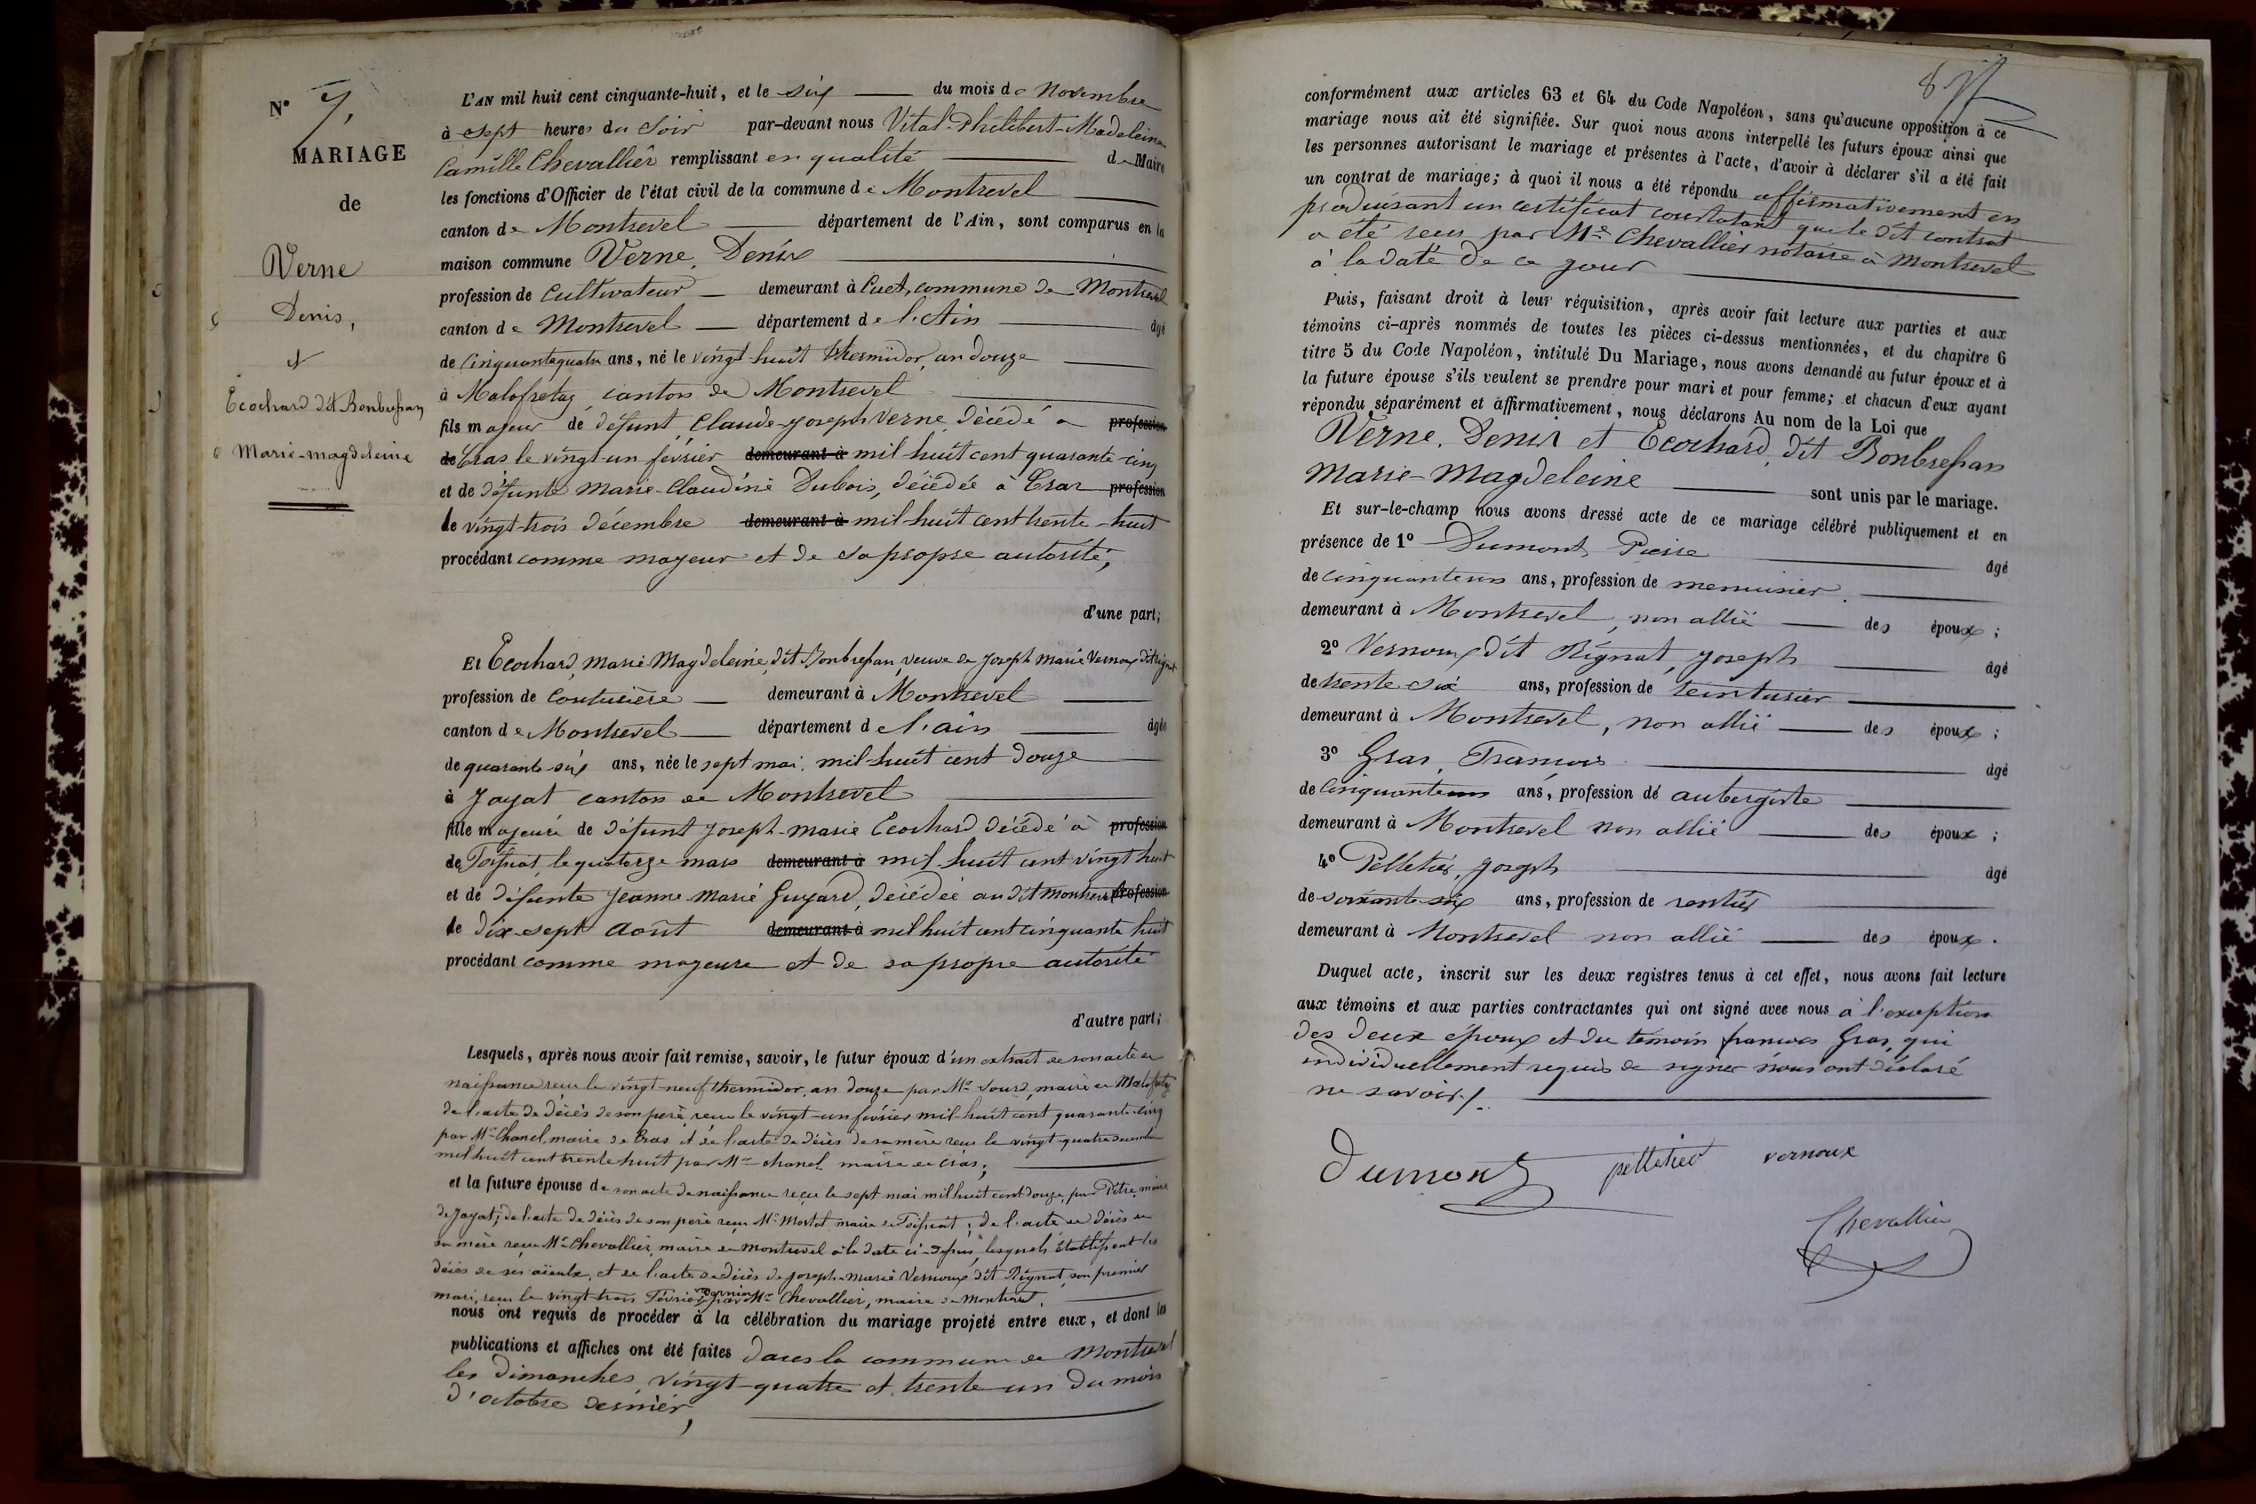 N° 7,
MARIAGE
de
Verne
Denis,
et
Ecochard dit Bonbressan
Marie-magdeleine
L'AN mil huit cent cinquante-huit, et le six du mois de Novembre
à sept heures du soir par-devant nous Vital-Philibert-Madeleine
Camille Chevallier remplissant en qualité de Maire
les fonctions d'Officier de l'état civil de la commune de Montrevel
canton de Montrevel département de l'Ain, sont comparus en la
maison commune Verne, Denis
profession de Cultivateur demeurant à Cuet, commune de Montrevel
canton de Montrevel département de l'Ain âgé
de Cinquante quatre ans, né le vingt huit thermidor, an douze
à Malafretaz canton de Montrevel
fils majeur de défunt, Claude-Joseph Verne, décédé à profession
de Cras le vingt-un février demeurant à mil-huit cent quarante-cinq
et de défunte Marie-Claudine Dubois, décédée à Cras profession
le vingt-trois décembre demeurant à mil-huit cent trente-huit
procédant comme majeur et de sa propre autorité;
d'une part;
Et Ecochard, Marie Magdeleine, dit Bonbressan, veuve de Joseph Marie Vernoux dit Rignat
profession de Couturière demeurant à Montrevel
canton de Montrevel département de l'ain âgée
de quarante-six ans, née le sept mai mil-huit cent douze
à Jayat canton de Montrevel
fille majeure de défunt Joseph-Marie Ecochard décédé à profession
de Foissiat, le quatorze mars demeurant à mil huit cent vingt huit
et de défunte Jeanne Marie Guyard, décédée au dit Montrevel profession
le Dix-sept Août demeurant à mil huit cent cinquante huit
procédant comme majeure et de sa propre autorité
d'autre part;
Lesquels, après nous avoir fait remise, savoir, le futur époux d'un extrait de son acte de
naissance reçu le vingt-neuf thermidor, an douze par Mr. Sourd, maire de Malafretaz
de l'acte de décès de son père reçu le vingt-un février mil huit cent quarante-cinq
par Mr. Chanel, maire de Cras et de l'acte de décès de sa mère reçu le vingt-quatre décembre
mil huit cent trente huit par Mr. Chanel maire de Cras;
et la future épouse de son acte de naissance reçu le sept mai mil huit cent douze, par Pitre maire
de Jayat; de l'acte de décès de son père reçu Mr. maire de Foissiat; de l'acte de décès de
sa mère reçu Mr. Chevallier, maire de Montrevel à la date ci-dessus, lesquels établissent les
décès de ses aïeuls, et de l'acte de décès de Joseph-Marie Vernoux dit Rignat, son premier
mari, reçu le vingt-trois Février dernier par Mr. Chevallier, maire de Montrevel,
nous ont requis de procéder à la célébration du mariage projeté entre eux, et dont les
publications et affiches ont été faites dans la commune de Montrevel
les Dimanches, vingt-quatre et trente-un du mois
d'octobre dernier,
8
conformément aux articles 63 et 64 du Code Napoléon, sans qu'aucune opposition à ce
mariage nous ait été signifiée. Sur quoi nous avons interpellé les futurs époux ainsi que
les personnes autorisant le mariage et présentes à l'acte, d'avoir à déclarer s'il a été fait
un contrat de mariage; à quoi il nous a été répondu affirmativement en
produisant un certificat constatant que le dit contrat
a été reçu par Me. Chevallier notaire à Montrevel
à la date de ce jour
Puis, faisant droit à leur réquisition, après avoir fait lecture aux parties et aux
témoins ci-après nommés de toutes les pièces ci-dessus mentionnées, et du chapitre 6
titre 5 du Code Napoléon, intitulé Du Mariage, nous avons demandé au futur époux et à
la future épouse s'ils veulent se prendre pour mari et pour femme; et chacun d'eux ayant
répondu séparément et affirmativement, nous déclarons Au nom de la Loi que
Verne, Denis et Ecochard, dit Bonbressan
Marie-Magdeleine sont unis par le mariage.
Et sur-le-champ nous avons dressé acte de ce mariage célébré publiquement et en
présence de 1° Dumont Pierre âgé
de cinquante un ans, profession de menuisier
demeurant à Montrevel, non allié des époux;
2° Vernoux dit Rignat, Joseph âgé
de trente six ans, profession de teinturier
demeurant à Montrevel, non allié des époux;
3° Gras, François âgé
de Cinquante un ans, profession de aubergiste
demeurant à Montrevel non allié des époux;
4° Pelletier, Joseph âgé
de soixante-six ans, profession de rentier
demeurant à Montrevel non allié des époux.
Duquel acte, inscrit sur les deux registres tenus à cet effet, nous avons fait lecture
aux témoins et aux parties contractantes qui ont signé avec nous à l'exception
des deux époux et du témoin françois Gras, qui
individuellement requis de signer nous ont déclaré
ne savoir/.
Dumont pelletier vernoux
Chevallier